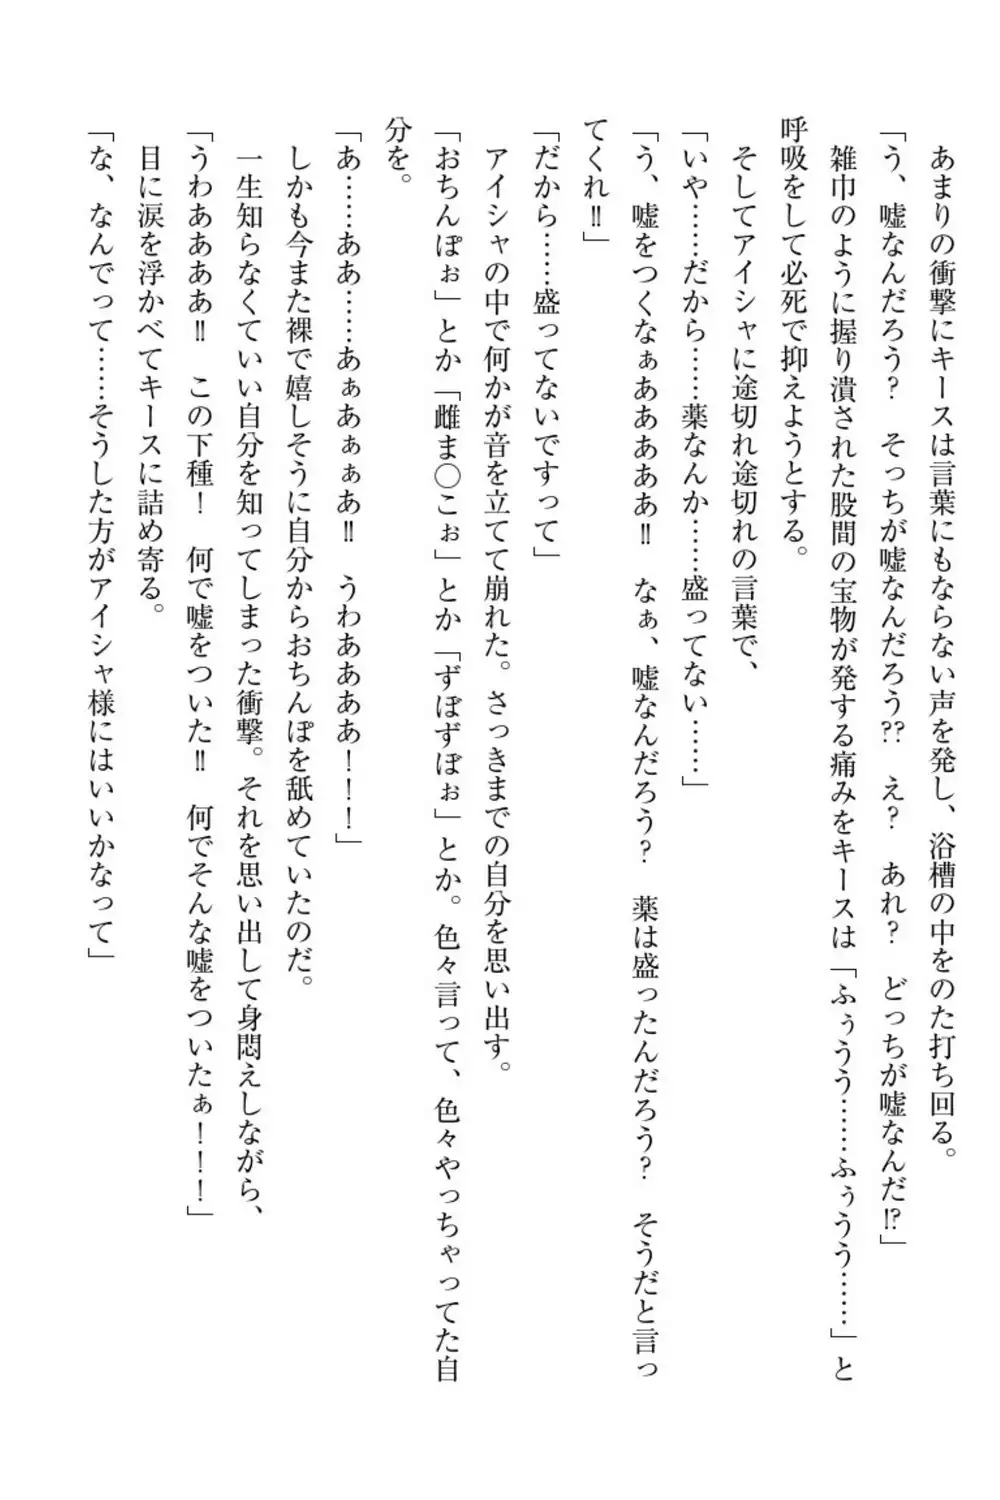 あまりの衝撃にキースは言葉にもならない声を発し、浴槽の中をのた打ち回る。
「う、嘘なんだろう？　そっちが嘘なんだろう⁇　え？　あれ？　どっちが嘘なんだ⁉」
雑巾のように握り潰された股間の宝物が発する痛みをキースは「ふぅうう……ふぅうう……」と
呼吸をして必死で抑えようとする。
そしてアイシャに途切れ途切れの言葉で、
「いや……だから……薬なんか……盛ってない……」
「う、嘘をつくなぁああああ‼　なぁ、嘘なんだろう？　薬は盛ったんだろう？　そうだと言っ
てくれ‼」
「だから……盛ってないですって」
アイシャの中で何かが音を立てて崩れた。さっきまでの自分を思い出す。
「おちんぽぉ」とか「雌ま〇こぉ」とか「ずぼずぼぉ」とか。色々言って、色々やっちゃってた自
分を。
「あ……ああ……あぁあぁぁあ‼　うわああああ！！！」
しかも今また裸で嬉しそうに自分からおちんぽを舐めていたのだ。
一生知らなくていい自分を知ってしまった衝撃。それを思い出して身悶えしながら、
「うわああああ‼　この下種！　何で嘘をついた‼　何でそんな嘘をついたぁ！！！」
目に涙を浮かべてキースに詰め寄る。
「な、なんでって……そうした方がアイシャ様にはいいかなって」